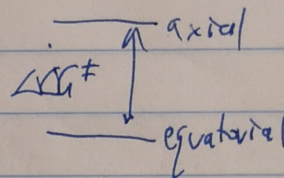 axial
ΔΔG‡
equatorial